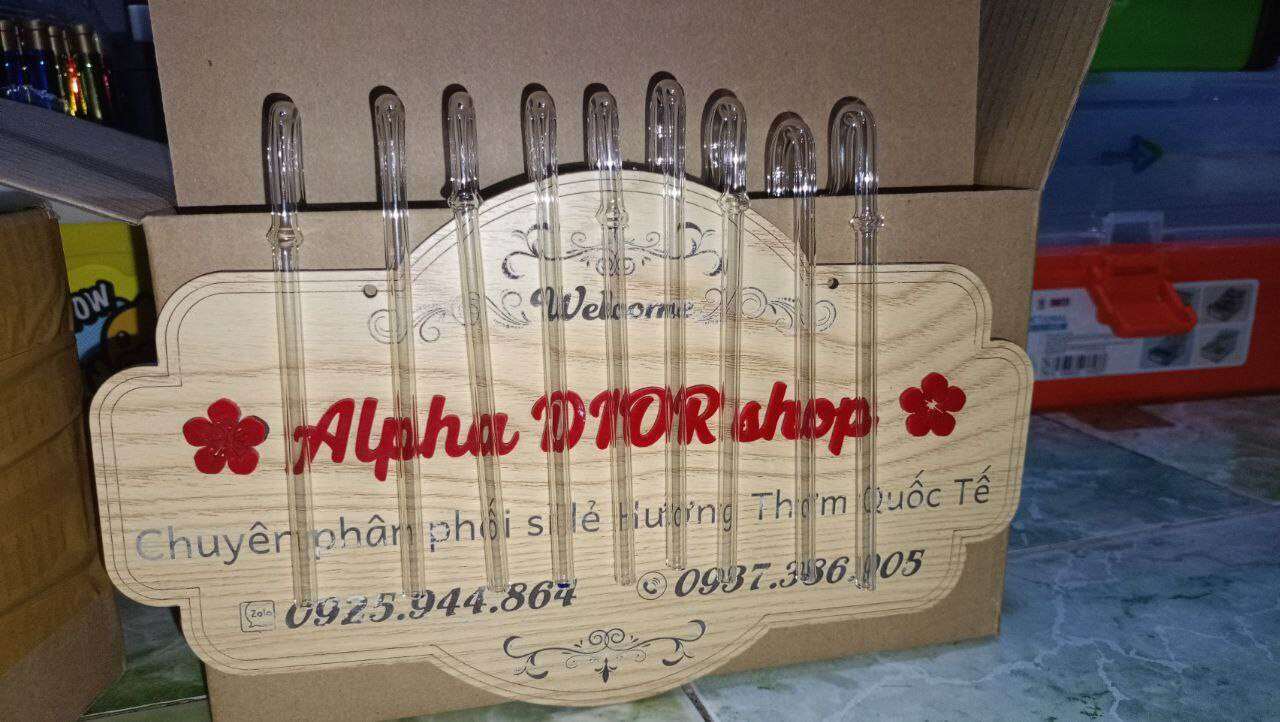 Welcome
Alpha DIOR shop
Chuyên phân phối sỉ lẻ Hương Thơm Quốc Tế
Zalo 0925.944.864
0937.386.905
OW